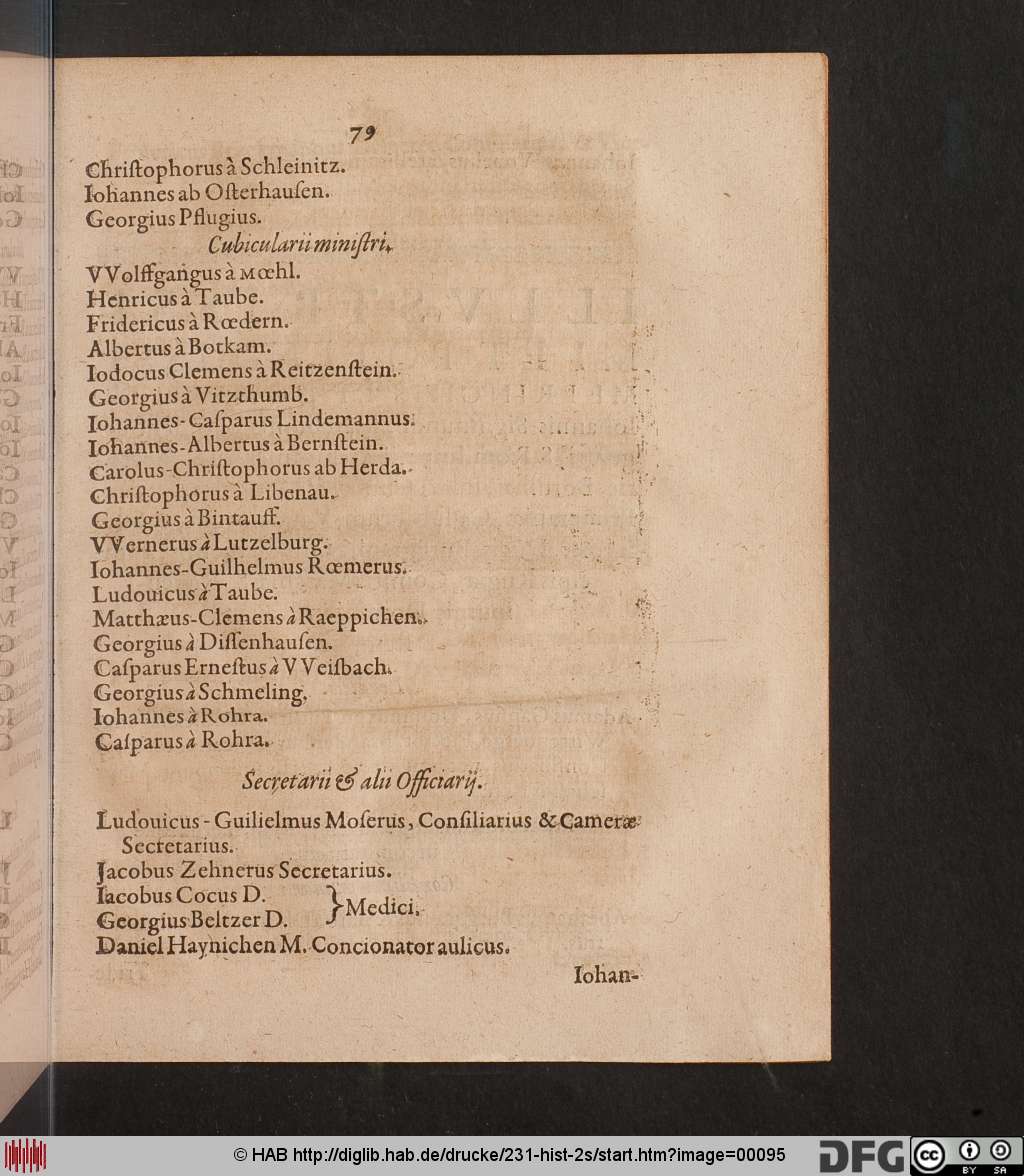 79
Chriſtophorus à Schleinitz.
Iohannes ab Oſterhauſen.
Georgius Pflugius.
Cubicularii miniſtri.
VVolffgangus à Mœhl.
Henricus à Taube.
Fridericus à Rœdern.
Albertus à Botkam.
Iodocus Clemens à Reitzenſtein.
Georgius à Vitzthumb.
Iohannes-Caſparus Lindemannus.
Iohannes-Albertus à Bernſtein.
Carolus-Chriſtophorus ab Herda.
Chriſtophorus à Libenau.
Georgius à Bintauff.
VVernerus à Lutzelburg.
Iohannes-Guilhelmus Rœmerus.
Ludouicus à Taube.
Matthæus-Clemens à Raeppichen.
Georgius à Diſſenhauſen.
Caſparus Erneſtus à VVeiſbach.
Georgius à Schmeling,
Iohannes à Rohra.
Caſparus à Rohra.
Secretarii & alii Officiarij.
Ludouicus-Guilielmus Moſerus, Conſiliarius & Cameræ
Secretarius.
Jacobus Zehnerus Secretarius.
Iacobus Cocus D.
Georgius Beltzer D. } Medici.
Daniel Haynichen M. Concionator aulicus.
Iohan-
© HAB http://diglib.hab.de/drucke/231-hist-2s/start.htm?image=00095
DFG
cc
BY SA